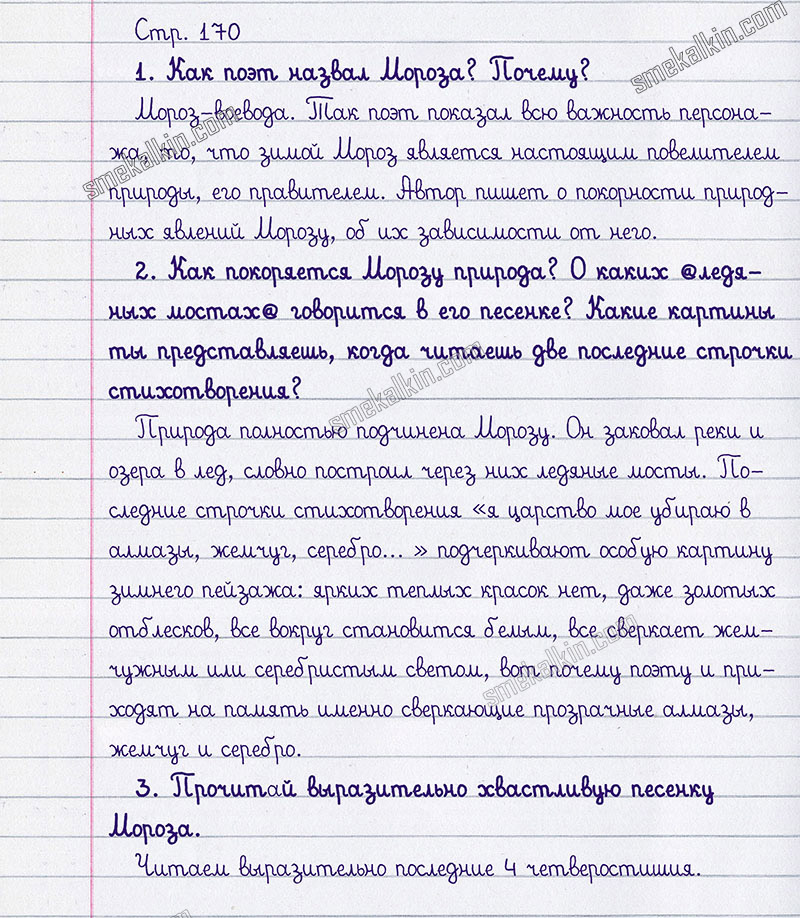 Стр. 170
1. Как поэт назвал Мороза? Почему?
Мороз-воевода. Так поэт показал всю важность персона-
жа, то, что зимой Мороз является настоящим повелителем
природы, его правителем. Автор пишет о покорности природ-
ных явлений Морозу, об их зависимости от него.
2. Как покоряется Морозу природа? О каких @ледя-
ных мостах@ говорится в его песенке? Какие картины
ты представляешь, когда читаешь две последние строчки
стихотворения?
Природа полностью подчинена Морозу. Он заковал реки и
озера в лед, словно построил через них ледяные мосты. По-
следние строчки стихотворения «я царство мое убираю в
алмазы, жемчуг, серебро... » подчеркивают особую картину
зимнего пейзажа: ярких теплых красок нет, даже золотых
отблесков, все вокруг становится белым, все сверкает жем-
чужным или серебристым светом, вот почему поэту и при-
ходят на память именно сверкающие прозрачные алмазы,
жемчуг и серебро.
3. Прочитай выразительно хвастливую песенку
Мороза.
Читаем выразительно последние 4 четверостишия.
smekalkin.com
smekalkin.com
smekalkin.com
smekalkin.com